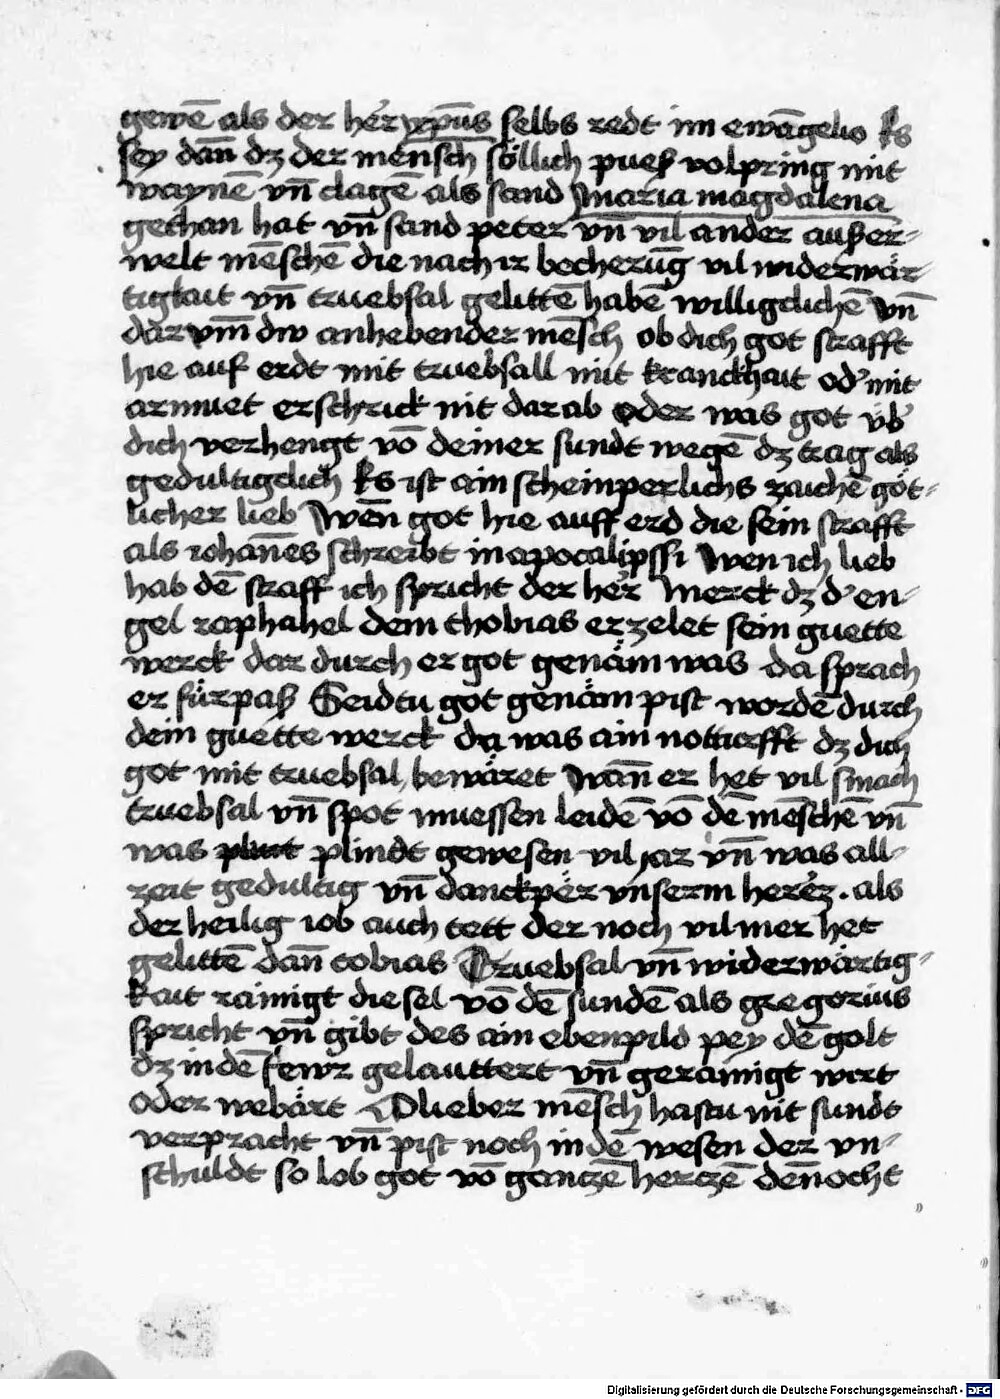 gewē als der her xp̄us selbs redt im ewāgelio Es
sey dan̄ dz der mensch söllich pueß volpring mit
waynē vn̄ clagē als sand maria magdalena
gethan hat vn̄ sand peter vn̄ vil ander außer-
welt mēschē die nach ir becherūg vil widerwär-
tigkait vn̄ truebsal gelittē habē willigclichē vn̄
dar vm̄ dw anhebender mēsch ob dich got strafft
hie auf erdt mit truebsall mit kranckhait od' mit
armuet erschrick nit dar ab oder was got üb'
dich verhengt vō deiner sundt wegē dz trag als
gedultigclich Es ist ain scheinperlichs zaichē göt-
licher lieb Wēn got hie auff erd die sein strafft
als iohān̄es schreibt in apocalipssi Wen ich lieb
hab dē straff ich spricht der her Merck dz d' en-
gel raphahel dem thobias erzelet sein guette
werck dar durch er got genäm was da sprach
er fürpaß Seidtu got genäm pist wordē durch
dein guette werck da was ain notturfft dz dich
got mit truebsal bewäret Wān er het vil smach
truebsal vn̄ spot muessen leidē vō dē mēschē vn̄
was plindt gewesen vil jar vn̄ was all-
zeit gedultig vn̄ danckpër vnserm herēz . als
der heilig iob auch tett der noch vil mer het
gelittē dan̄ tobias Truebsal vn̄ widerwärtig-
kait rainigt die sel vō dē sundē als gregorius
spricht vn̄ gibt des ain ebenpild pey dē golt
dz in dē fewr gelauttert vn̄ gerainigt wirt
oder webärt O lieber mēsch hastu nit sundt
verpracht vn̄ pist noch in dē wesen der vn-
schuldt so lob got vō gantzē hertzē den̄ocht
Digitalisierung gefördert durch die Deutsche Forschungsgemeinschaft - DFG